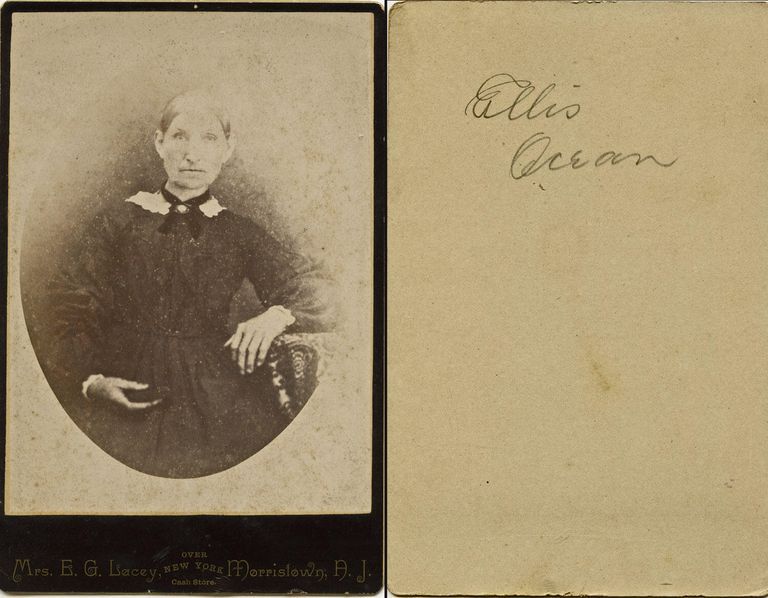 Mrs. E. G. Lacey, OVER NEW YORK Cash Store. Morristown, N. J.
Ellis
Ocean